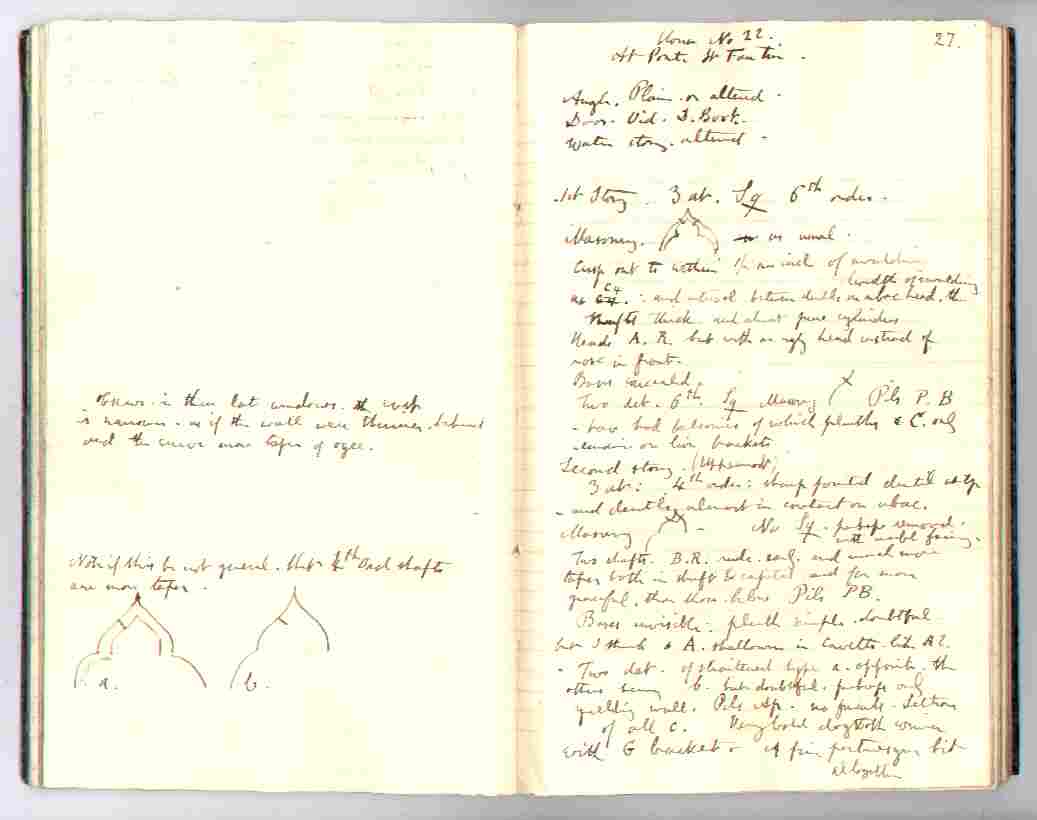 observe in these lat windows. the cusp
is narrower. as if the wall were thinner. behind
and the curve more taper of ogee.
Note if this be not general. that 4th Ord shafts
are more taper.
a. b.
27.
House No 22.
At Ponte St Fantin.
Angle. Plain. or altered.
Door. Vid. D. Book.
Water story. altered.
1st Story. 3 ab. Sq 6th order.
Masonry. as usual.
Cusp out to within an inch of moulding
breadth of moulding
as C4. and intervl between dentils on abac head, the
shafts thick and almost pure cylinders
Heads A. R. but with an ugly head instead of
rose in front.
Bases concealed.
Two det. 6th. Sq Masonry Pils P. B
- have had balconies of which plinths & C. only
remain on lion brackets
Second story. (Uppermost)
3 ab: 4th order: sharp pointed dentil at top
- and dentils almost in contact on abac.
Masonry - No Sq. perhaps removed.
with marble facing.
Two shafts. B.R. rude. early. and much more
taper both in shaft & capital and far more
graceful, than those below Pils PB.
Bases invisible: plinth simple. doubtful.
but I think A. shallower in Cavetto. like A2.
- Two det. of shortened type a. opposite. the
others being b. but doubtful. perhaps only
yielding wall. Pils Ap. no Section
of all C. Very bold dogtooth cornice
with G brackets A fine picturesque bit
altogether